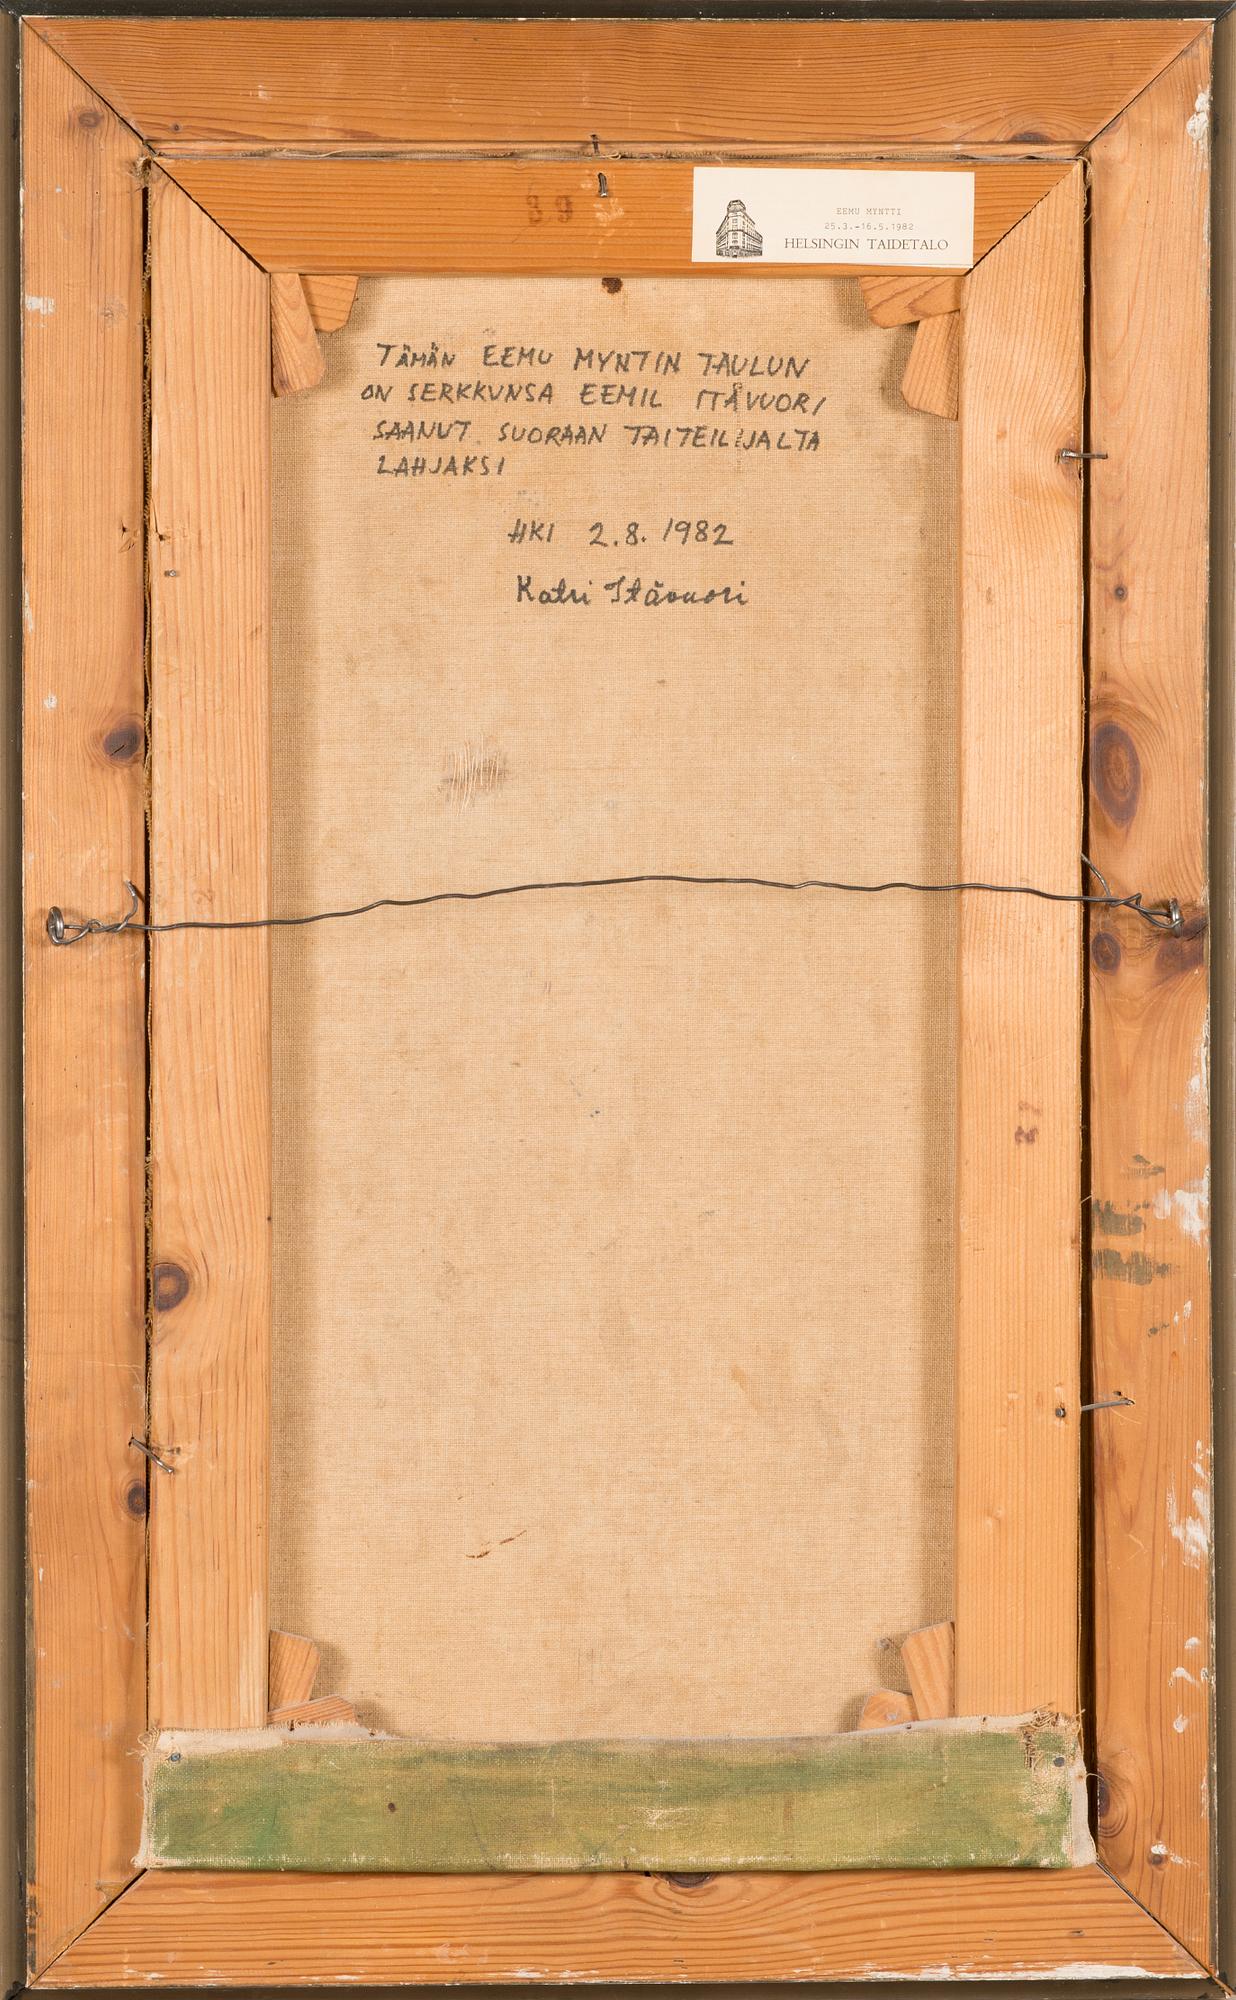 39
EEMU MYNTTI
25.3.-16.5.1982
HELSINGIN TAIDETALO
TÄMÄN EEMU MYNTIN TAULUN
ON SERKKUNSA EEMIL ITÄVUORI
SAANUT SUORAAN TAITEILIJALTA
LAHJAKSI
HKI 2.8.1982
Katri Itävuori